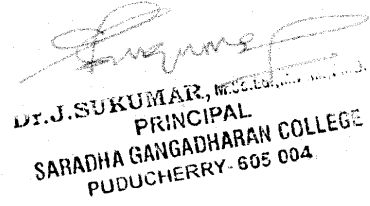 Dr.J.SUKUMAR,
PRINCIPAL
SARADHA GANGADHARAN COLLEGE
PUDUCHERRY-605 004